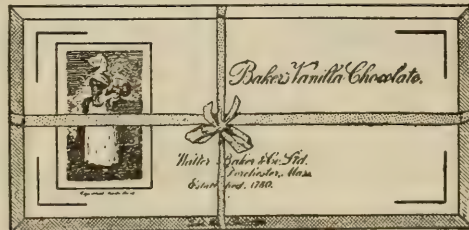 Baker's Vanilla Chocolate.
Walter Baker & Co. Ltd.
Dorchester, Mass
Established. 1780.